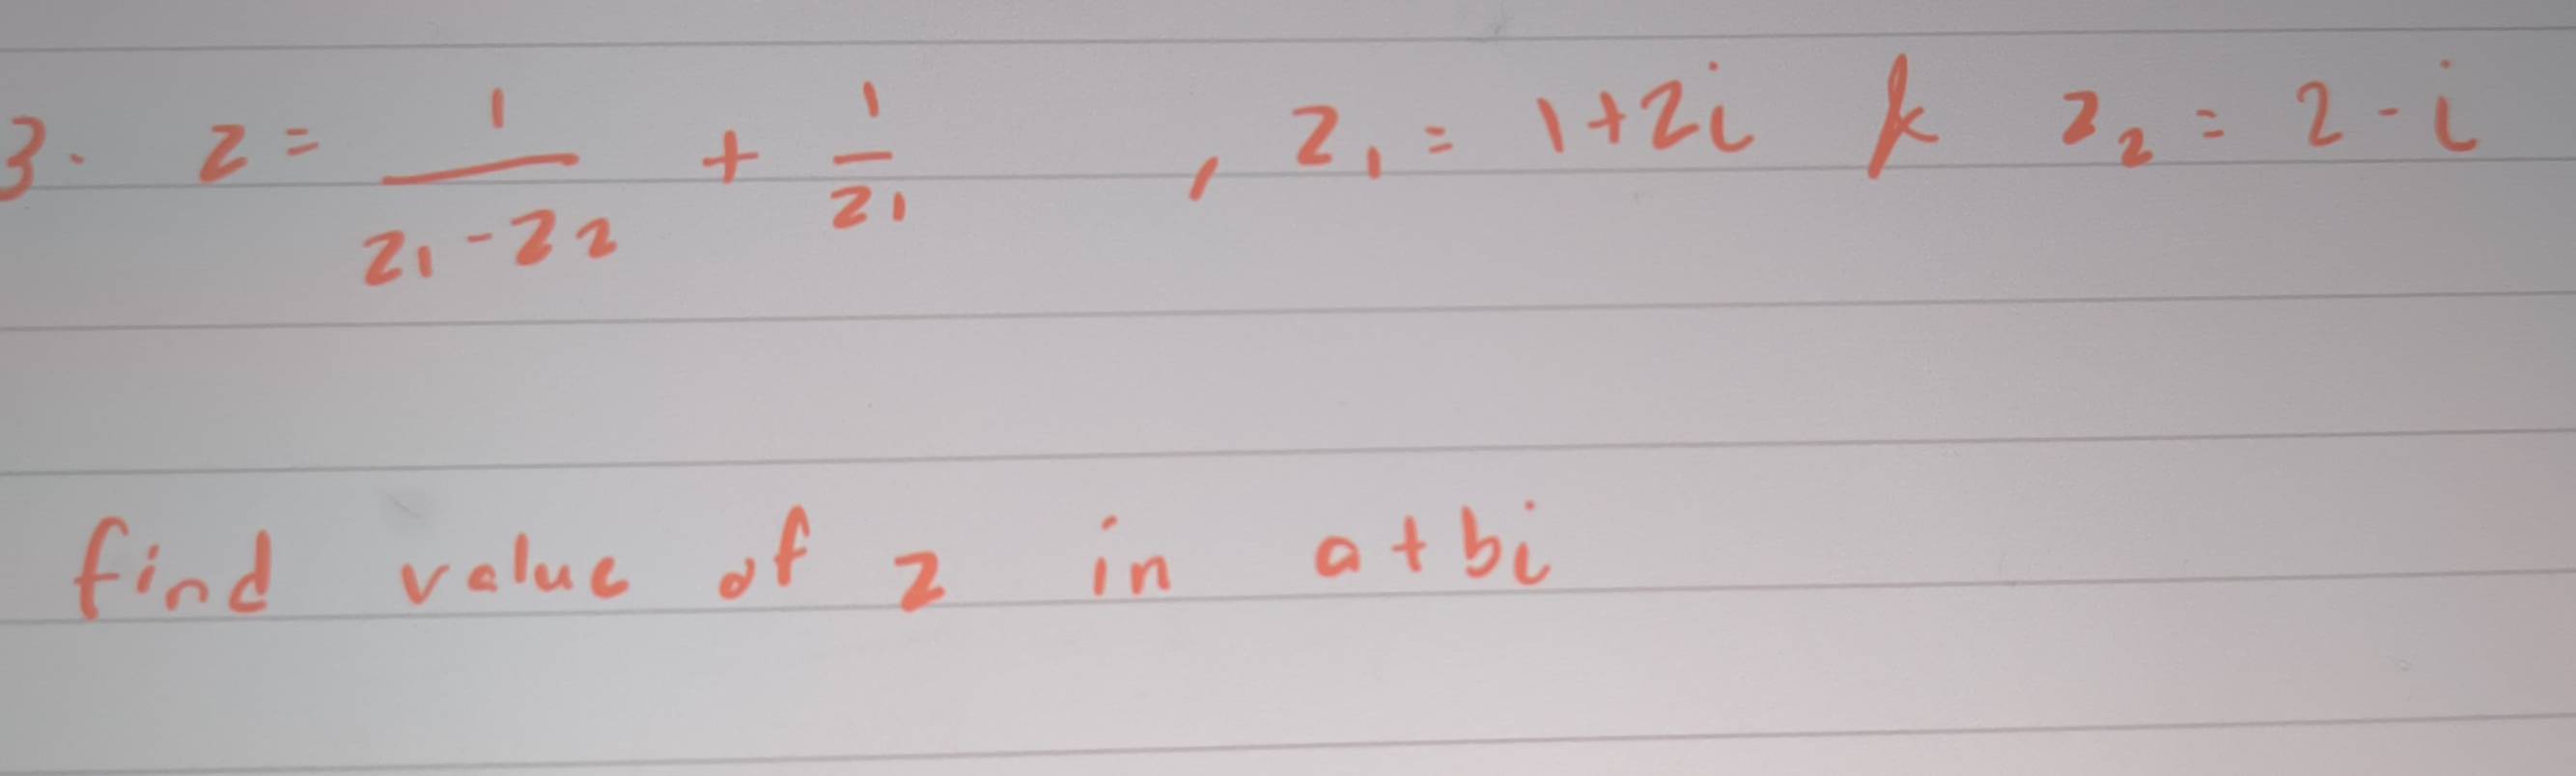 3. z = 1/(z₁ - z₂) + 1/z₁ , z₁ = 1+2i & z₂ = 2 - i
find value of z in a+bi